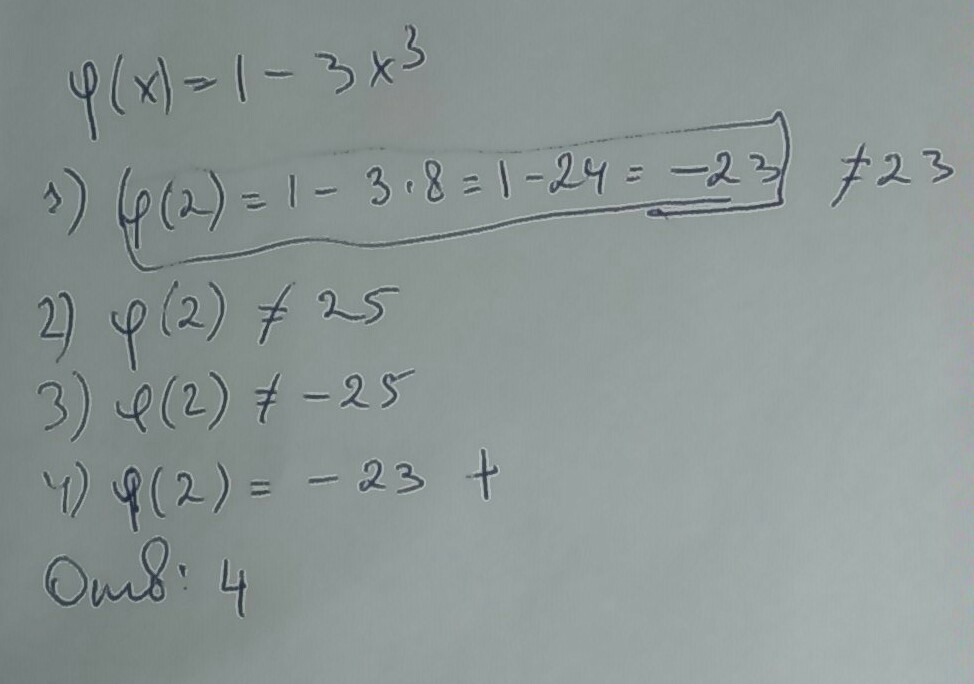 φ(x) = 1 - 3x³
1) φ(2) = 1 - 3·8 = 1 - 24 = -23 ≠ 23
2) φ(2) ≠ 25
3) φ(2) ≠ -25
4) φ(2) = -23 +
Отв: 4